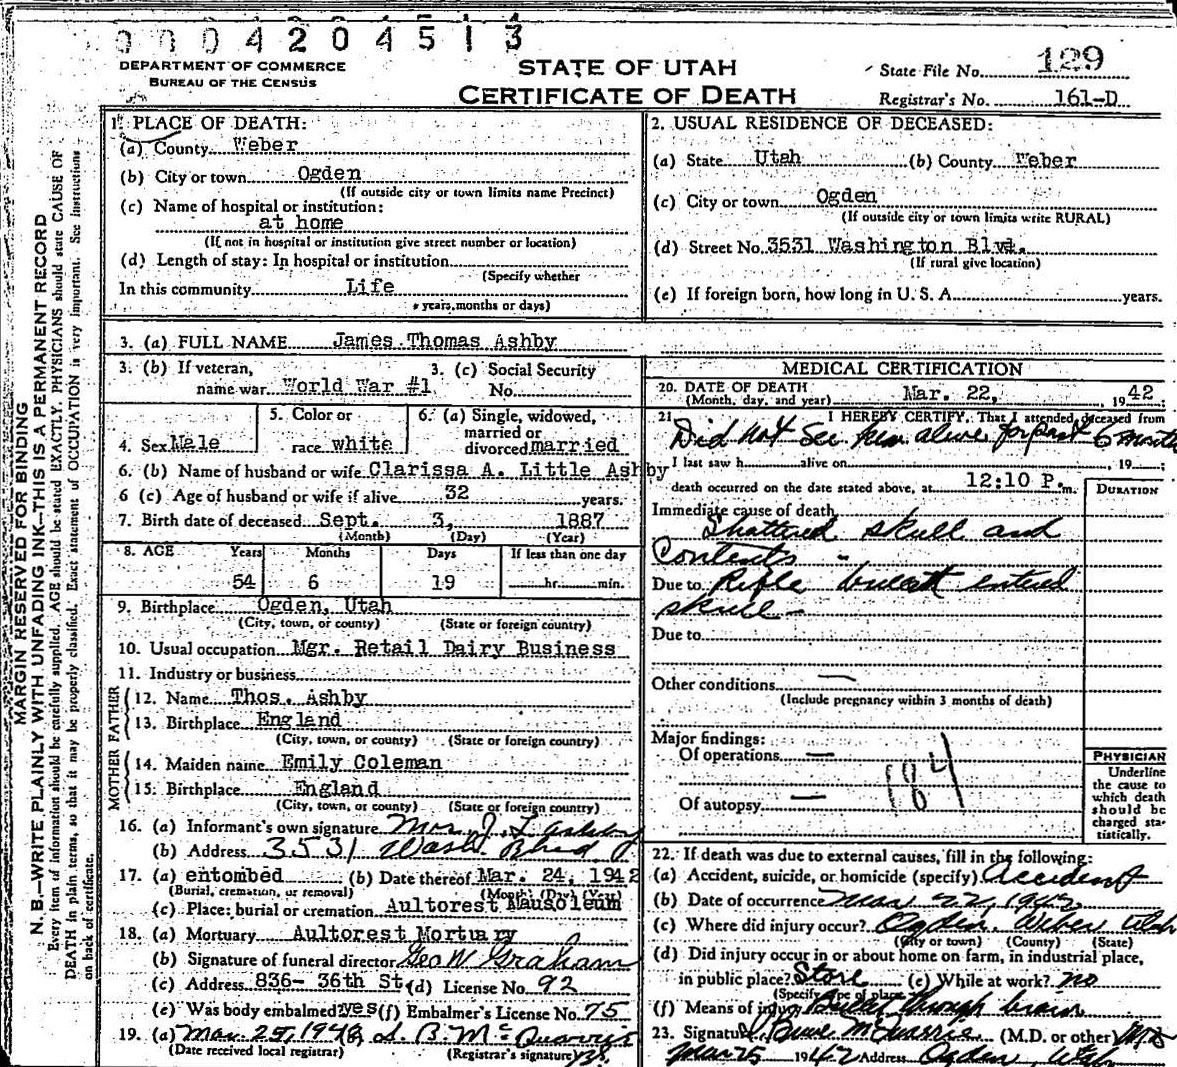 0004204513
DEPARTMENT OF COMMERCE
BUREAU OF THE CENSUS
STATE OF UTAH
CERTIFICATE OF DEATH
State File No. 129
Registrar's No. 161-D
MARGIN RESERVED FOR BINDING
N. B.—WRITE PLAINLY WITH UNFADING INK—THIS IS A PERMANENT RECORD
Every item of information should be carefully supplied. AGE should be stated EXACTLY. PHYSICIANS should state CAUSE OF
DEATH in plain terms, so that it may be properly classified. Exact statement of OCCUPATION is very important. See instructions
on back of certificate.
1. PLACE OF DEATH:
(a) County Weber
(b) City or town Ogden
(If outside city or town limits name Precinct)
(c) Name of hospital or institution:
at home
(If not in hospital or institution give street number or location)
(d) Length of stay: In hospital or institution
(Specify whether
In this community Life
years, months or days)
2. USUAL RESIDENCE OF DECEASED:
(a) State Utah (b) County Weber
(c) City or town Ogden
(If outside city or town limits write RURAL)
(d) Street No. 3531 Washington Blvd.
(If rural give location)
(e) If foreign born, how long in U. S. A. years.
3. (a) FULL NAME James Thomas Ashby
3. (b) If veteran,
name war World War #1
3. (c) Social Security
No.
4. Sex Male
5. Color or
race white
6. (a) Single, widowed,
married or
divorced married
6. (b) Name of husband or wife Clarissa A. Little Ashby
6 (c) Age of husband or wife if alive 32 years.
7. Birth date of deceased Sept. 3, 1887
(Month) (Day) (Year)
8. AGE Years Months Days If less than one day
54 6 19 hr. min.
9. Birthplace Ogden, Utah
(City, town, or county) (State or foreign country)
10. Usual occupation Mgr. Retail Dairy Business
11. Industry or business
FATHER
12. Name Thos. Ashby
13. Birthplace England
(City, town, or county) (State or foreign country)
MOTHER
14. Maiden name Emily Coleman
15. Birthplace England
(City, town, or county) (State or foreign country)
16. (a) Informant's own signature Mrs. J. T. Ashby
(b) Address 3531 Wash. Blvd
17. (a) entombed (b) Date thereof Mar. 24, 1942
(Burial, cremation, or removal) (Month) (Day) (Year)
(c) Place: burial or cremation Aultorest Mausoleum
18. (a) Mortuary Aultorest Mortuary
(b) Signature of funeral director Geo W Graham
(c) Address 836- 36th St (d) License No. 92
(e) Was body embalmed yes (f) Embalmer's License No. 75
19. (a) Mar. 25, 1942
(Date received local registrar) (Registrar's signature)
MEDICAL CERTIFICATION
20. DATE OF DEATH Mar. 22, 1942
(Month, day, and year)
21. I HEREBY CERTIFY, That I attended deceased from
Did not see him alive for past 6 months
I last saw h alive on , 19 ;
death occurred on the date stated above, at 12:10 P. m.
DURATION
Immediate cause of death
Shattered skull and
Contents -
Due to Rifle bullet entered
skull -
Due to
Other conditions —
(Include pregnancy within 3 months of death)
Major findings:
Of operations —
Of autopsy —
184
PHYSICIAN
Underline
the cause to
which death
should be
charged sta-
tistically.
22. If death was due to external causes, fill in the following:
(a) Accident, suicide, or homicide (specify) Accident
(b) Date of occurrence Mar 22, 1942
(c) Where did injury occur? Ogden. Weber Utah
(City or town) (County) (State)
(d) Did injury occur in or about home on farm, in industrial place,
in public place? Store (e) While at work? no
(Specify type of place)
(f) Means of injury Bullet through brain
23. Signature (M.D. or other) M.D
Mar 25 1942 Address Ogden, Utah